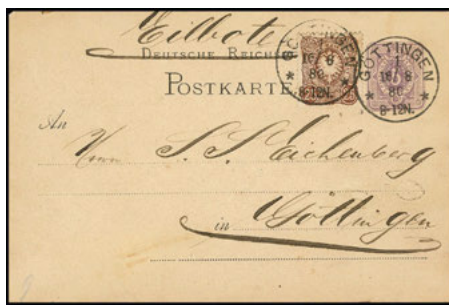 Eilbote
DEUTSCHE REICHS
POSTKARTE
GÖTTINGEN
16 8
80
8-12N.
GÖTTINGEN
1
16 8
80
8-12N.
An
Herrn S. S. Eichenberg
in Göttingen